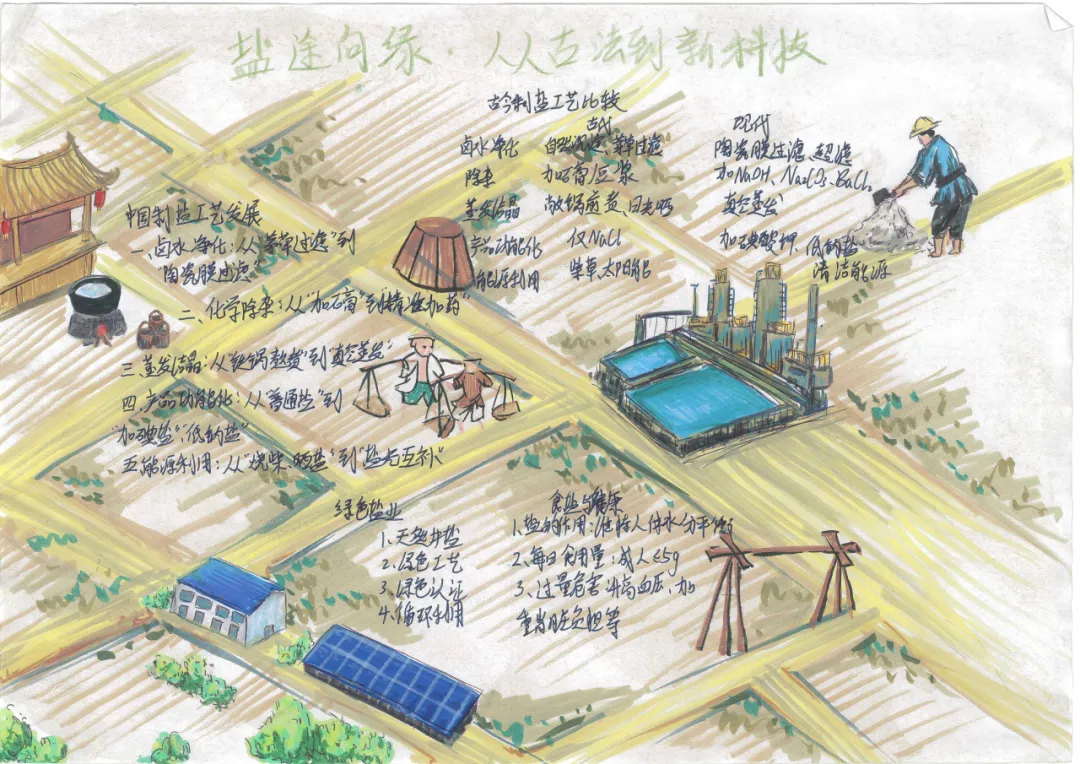 盐途向绿·从古法到新科技
古今制盐工艺比较
古代 现代
卤水净化 自然沉淀、草过滤 陶瓷膜过滤、超滤
除杂 加石膏/豆浆 加NaOH、Na₂CO₃、BaCl₂
蒸发结晶 敞锅煎煮、日光晒 真空蒸发
产品功能化 仅NaCl 加碘酸钾、低钠盐
能源利用 柴草、太阳能 清洁能源
中国制盐工艺发展
一、卤水净化：从“草过滤”到
“陶瓷膜过滤”
二、化学除杂：从“加石膏”到“精准加药”
三、蒸发结晶：从“铁锅熬煮”到“真空蒸发”
四、产品功能化：从“普通盐”到
“加碘盐”、“低钠盐”
五、能源利用：从“烧柴、晒盐”到“盐光互补”
绿色盐业
1、天然井盐
2、绿色工艺
3、绿色认证
4、循环利用
食盐与健康
1、盐的作用：维持人体水分平衡
2、每日食用量：成人≤5g
3、过量危害：升高血压、加
重肾脏负担等